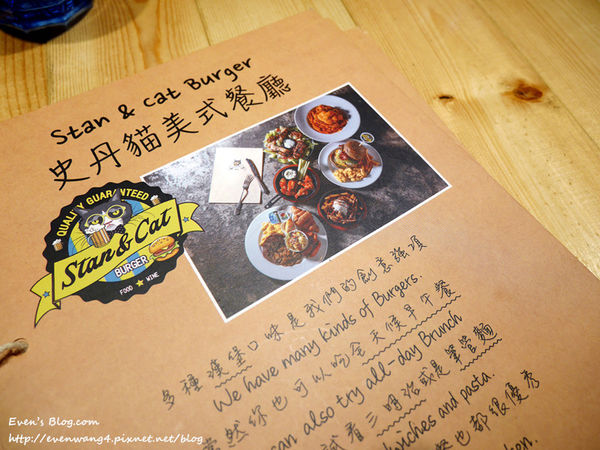 Stan & Cat Burger
史丹貓美式餐廳
QUALITY GUARANTEED
Stan & Cat
BURGER
FOOD ★ WINE
多種漢堡口味是我們的創意強項
We have many kinds of Burgers.
當然你也可以吃全天候早午餐
can also try all-day Brunch
試看三明治或是筆管麵
wiches and pasta.
餐也都很優秀
ken.
Even's Blog.com
http://evenwang4.pixnet.net/blog